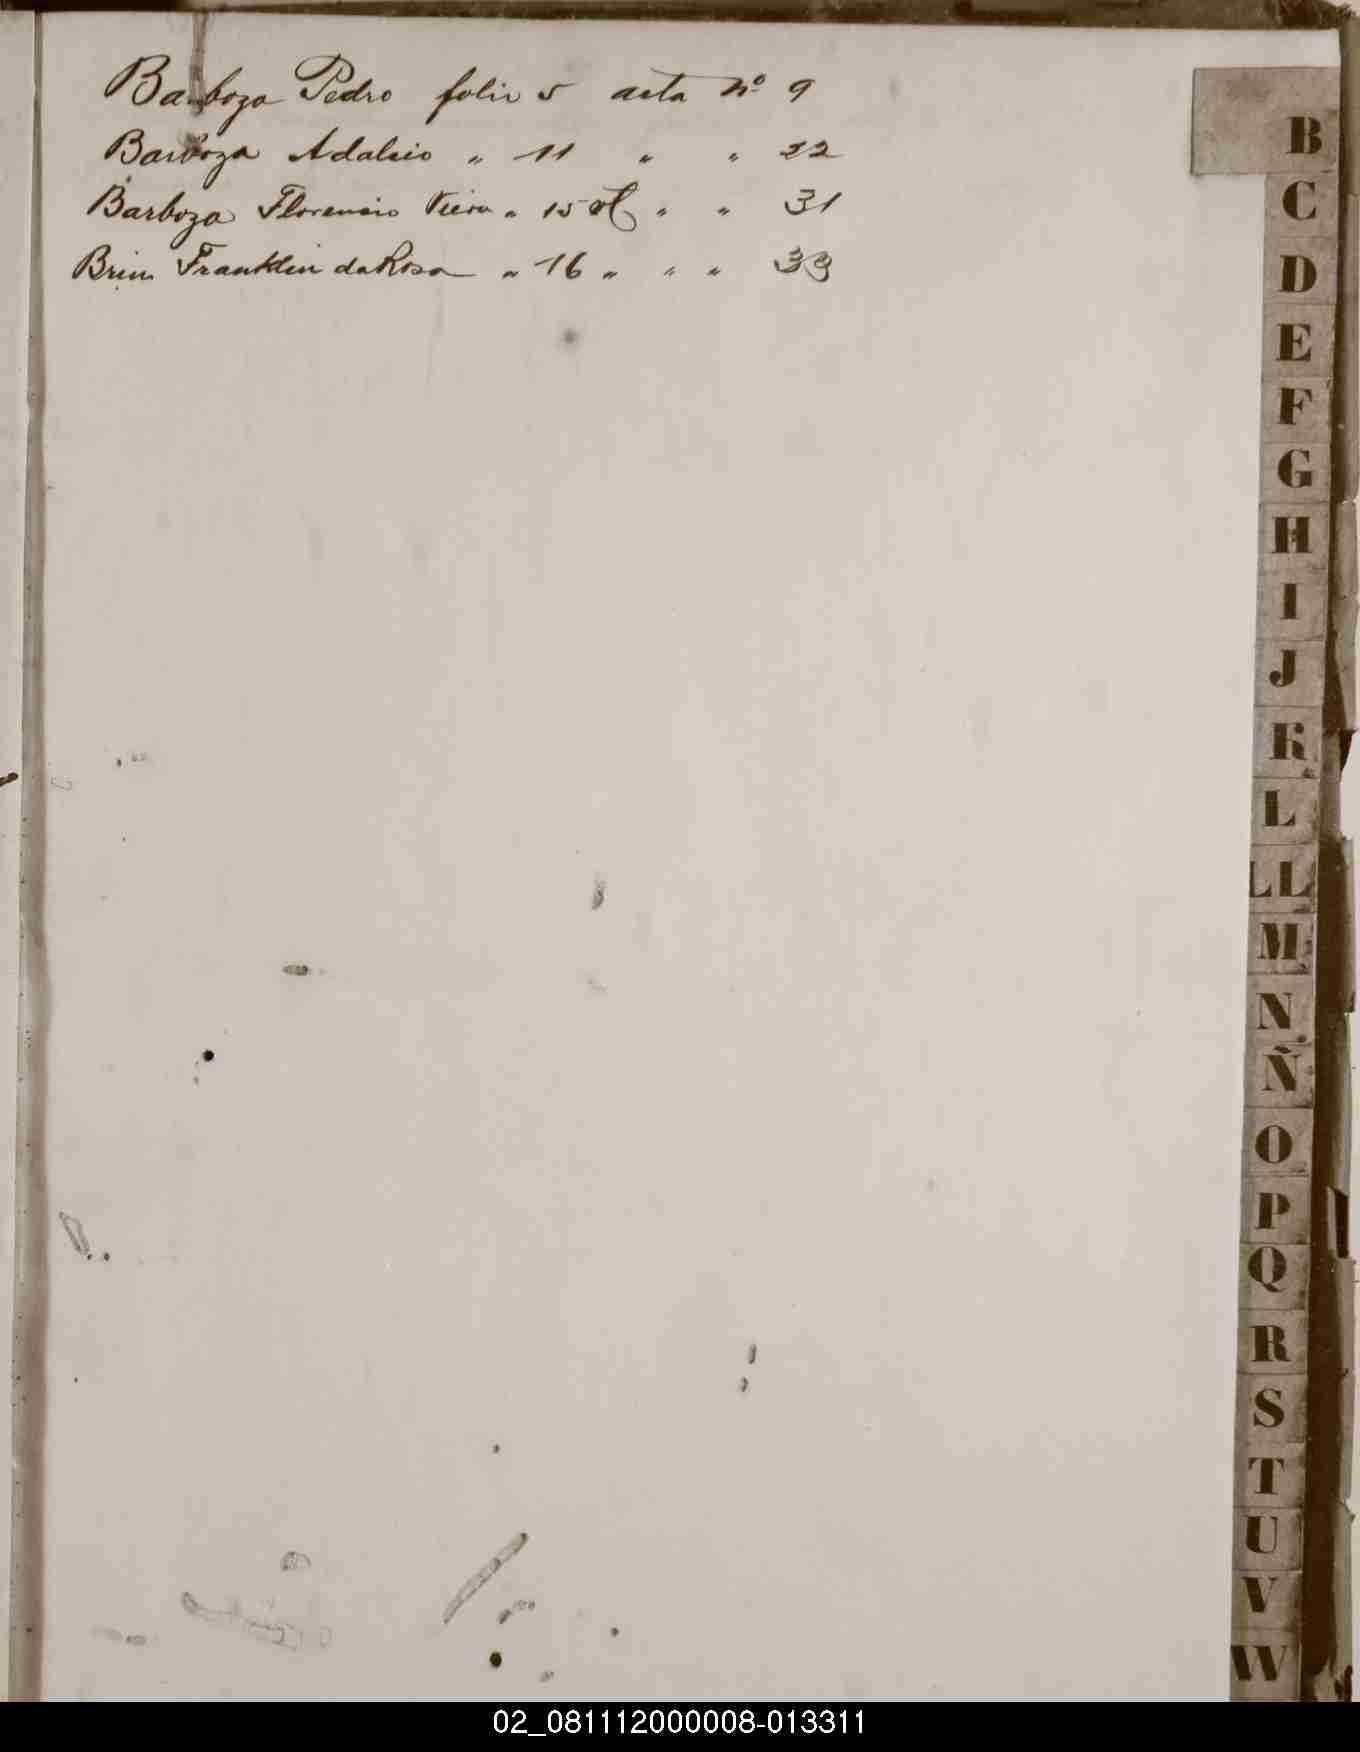 Barboza Pedro folio 5 acta Nº 9
Barboza Adalcio " 11 " " 22
Barboza Florencio Viera " 15 " " 31
Brim Franklin da Rosa " 16 " " " 33
B
C
D
E
F
G
H
I
J
K
L
LL
M
N
Ñ
O
P
Q
R
S
T
U
V
W
02_081112000008-013311